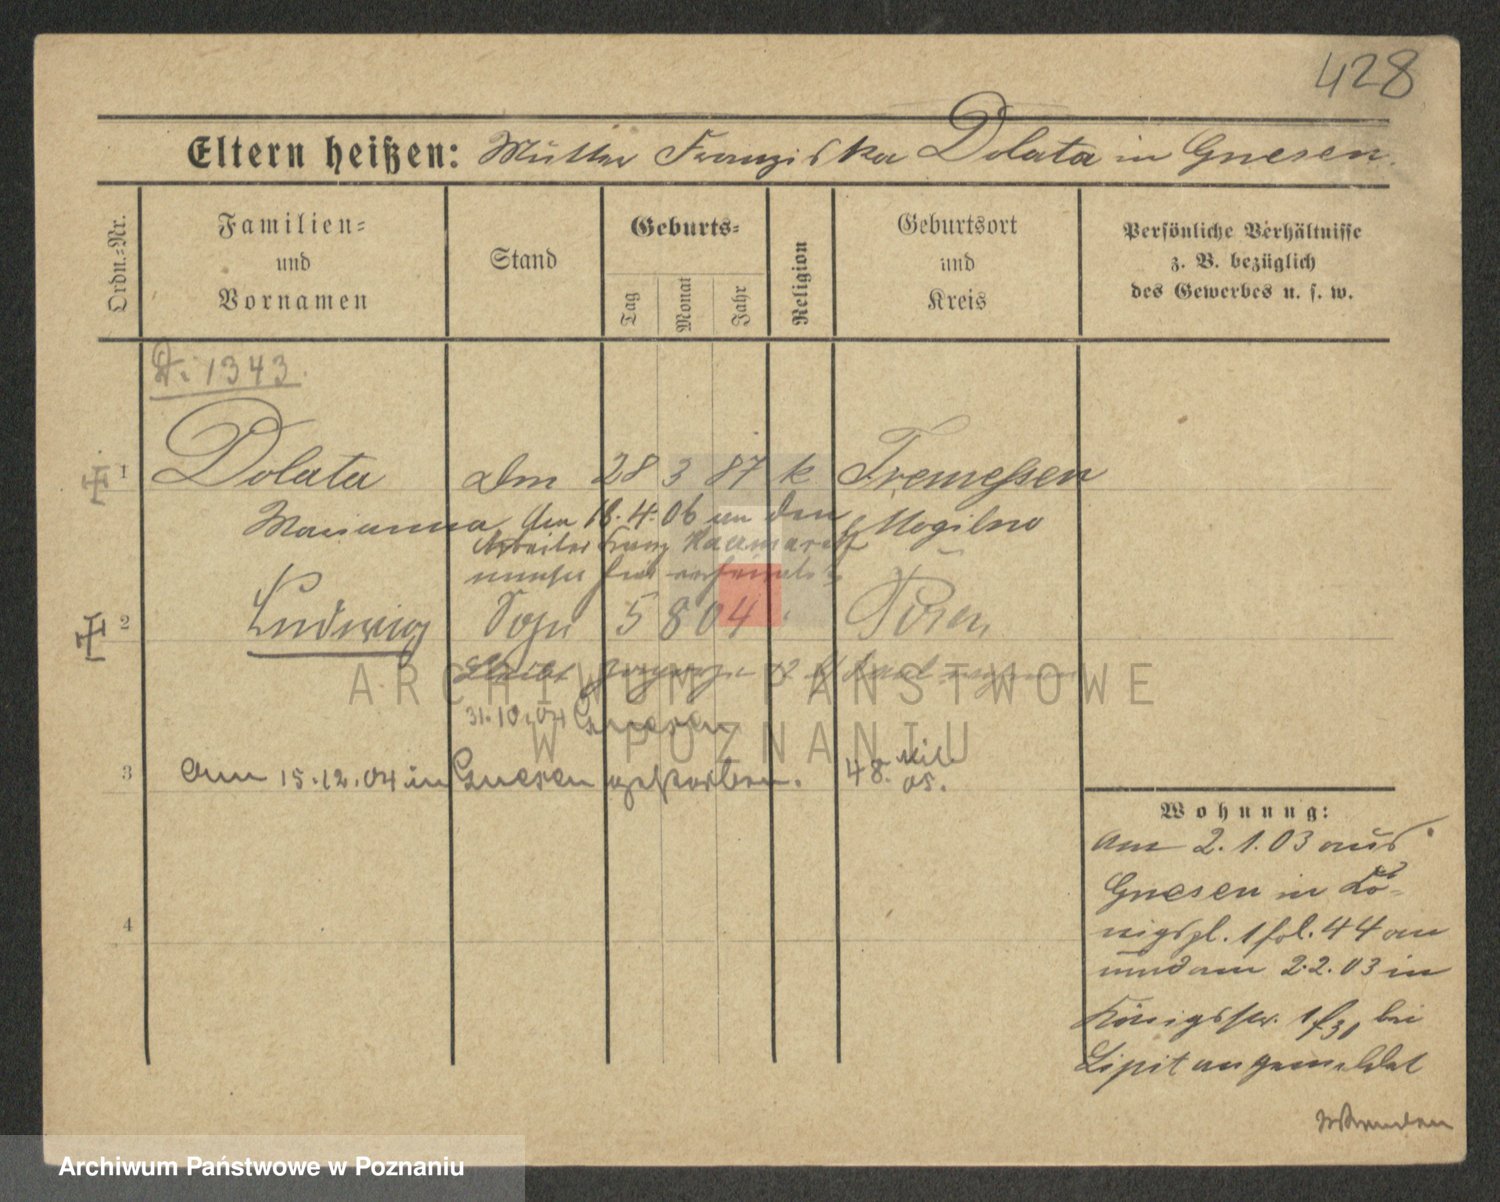 428
Eltern heißen: Mutter Franziska Dolata in Gnesen.
Ordn.=Nr.
Familien=
und
Vornamen
Stand
Geburts=
Tag
Monat
Jahr
Religion
Geburtsort
und
Kreis
Persönliche Verhältnisse
z. B. bezüglich
des Gewerbes u. s. w.
D. 1343.
1 Dolata 28 3 87 k Tremessen
Marianna Am 18.4.06 an den Mogilno
Arbeiter Franz
2 Ludwig Sohn 5 8 04 Posen
31.10.04 Gnesen
3 am 15.12.04 in Gnesen gestorben. 48. 05.
4
Wohnung:
Am 2.1.03 aus
Gnesen in Kö=
nigspl. 1 44 an
und am 2.2.03 in
Königsstr. 1 bei
Lipit angemeldet
ARCHIWUM PAŃSTWOWE
W POZNANIU
Archiwum Państwowe w Poznaniu